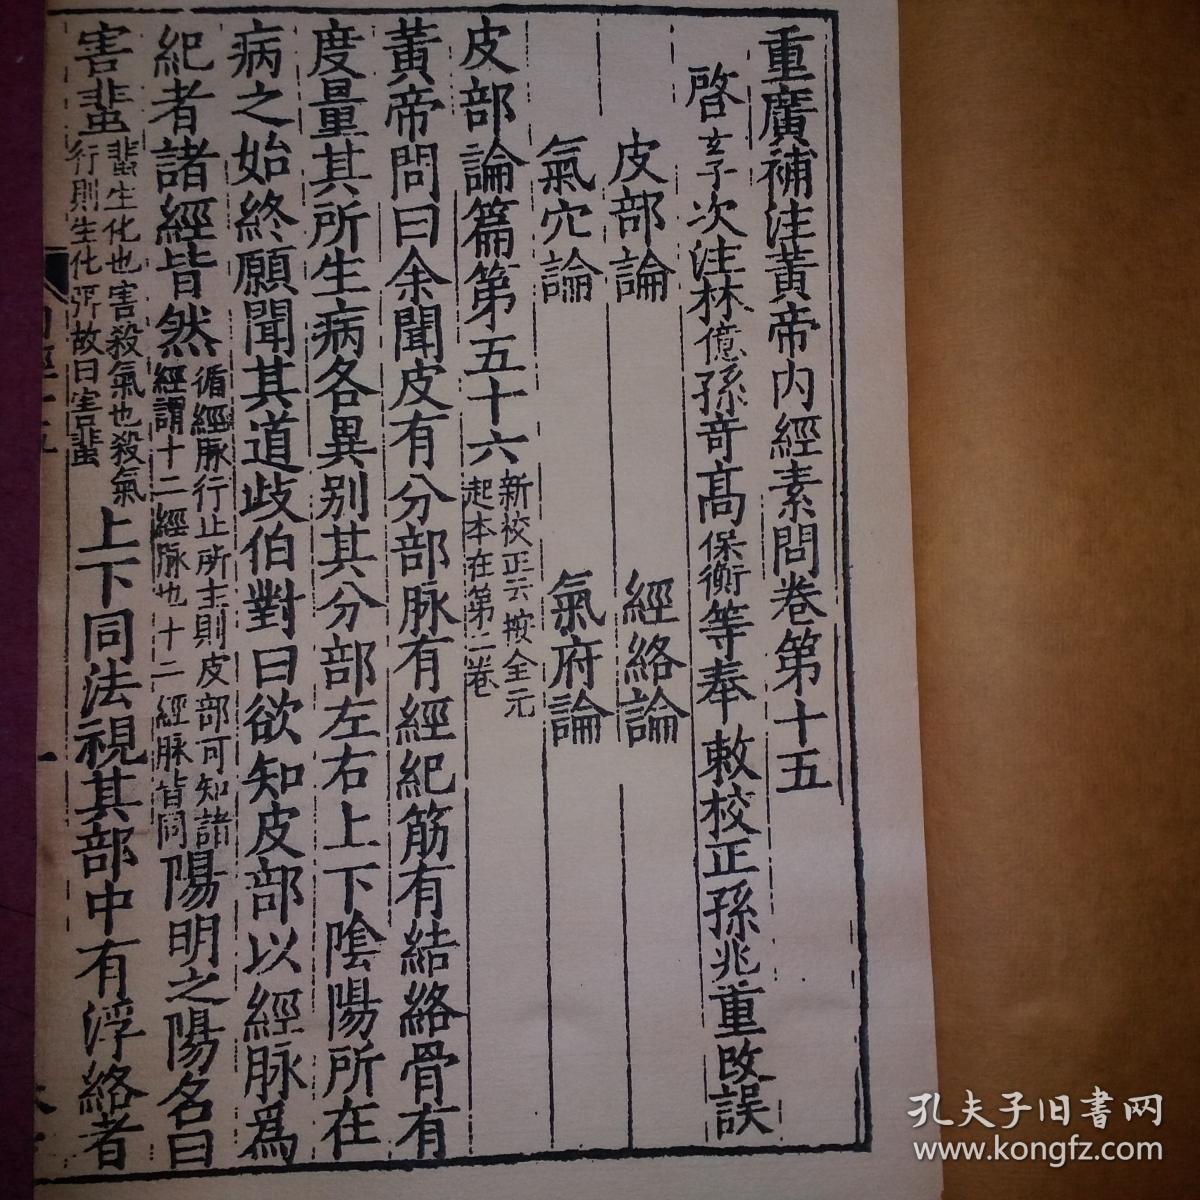 重廣補注黃帝內經素問卷第十五
啓玄子次注林億孫奇高保衡等奉敕校正孫兆重改誤
皮部論　經絡論
氣穴論　氣府論
皮部論篇第五十六新校正云按全元起本在第二卷
黃帝問曰余聞皮有分部脉有經紀筋有結絡骨有
度量其所生病各異别其分部左右上下陰陽所在
病之始終願聞其道歧伯對曰欲知皮部以經脉爲
紀者諸經皆然循經脉行止所主則皮部可知諸經謂十二經脉也十二經脉皆同陽明之陽名曰
害蜚蜚生化也害殺氣也殺氣行則生化弭故曰害蜚上下同法視其部中有浮絡者
孔夫子旧書网
www.kongfz.com